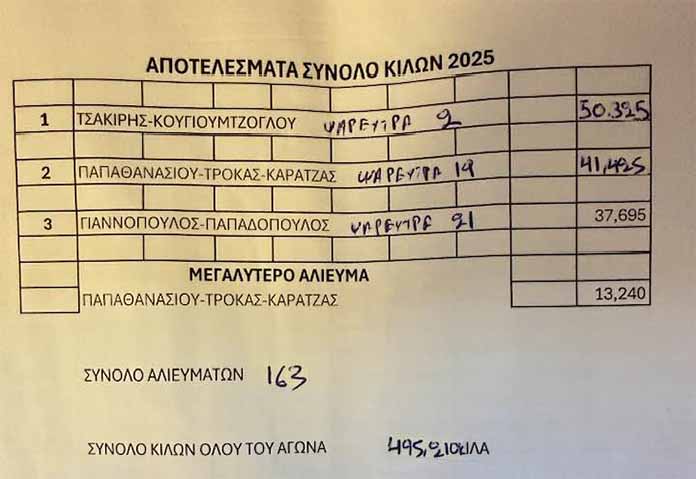 ΑΠΟΤΕΛΕΣΜΑΤΑ ΣΥΝΟΛΟ ΚΙΛΩΝ 2025
1 ΤΣΑΚΙΡΗΣ-ΚΟΥΓΙΟΥΜΤΖΟΓΛΟΥ ΨΑΡΕΥΤΡΑ 2 50.325
2 ΠΑΠΑΘΑΝΑΣΙΟΥ-ΤΡΟΚΑΣ-ΚΑΡΑΤΖΑΣ ΨΑΡΕΥΤΡΑ 19 41,425
3 ΓΙΑΝΝΟΠΟΥΛΟΣ-ΠΑΠΑΔΟΠΟΥΛΟΣ ΨΑΡΕΥΤΡΑ 21 37,695
ΜΕΓΑΛΥΤΕΡΟ ΑΛΙΕΥΜΑ
ΠΑΠΑΘΑΝΑΣΙΟΥ-ΤΡΟΚΑΣ-ΚΑΡΑΤΖΑΣ 13,240
ΣΥΝΟΛΟ ΑΛΙΕΥΜΑΤΩΝ 163
ΣΥΝΟΛΟ ΚΙΛΩΝ ΟΛΟΥ ΤΟΥ ΑΓΩΝΑ